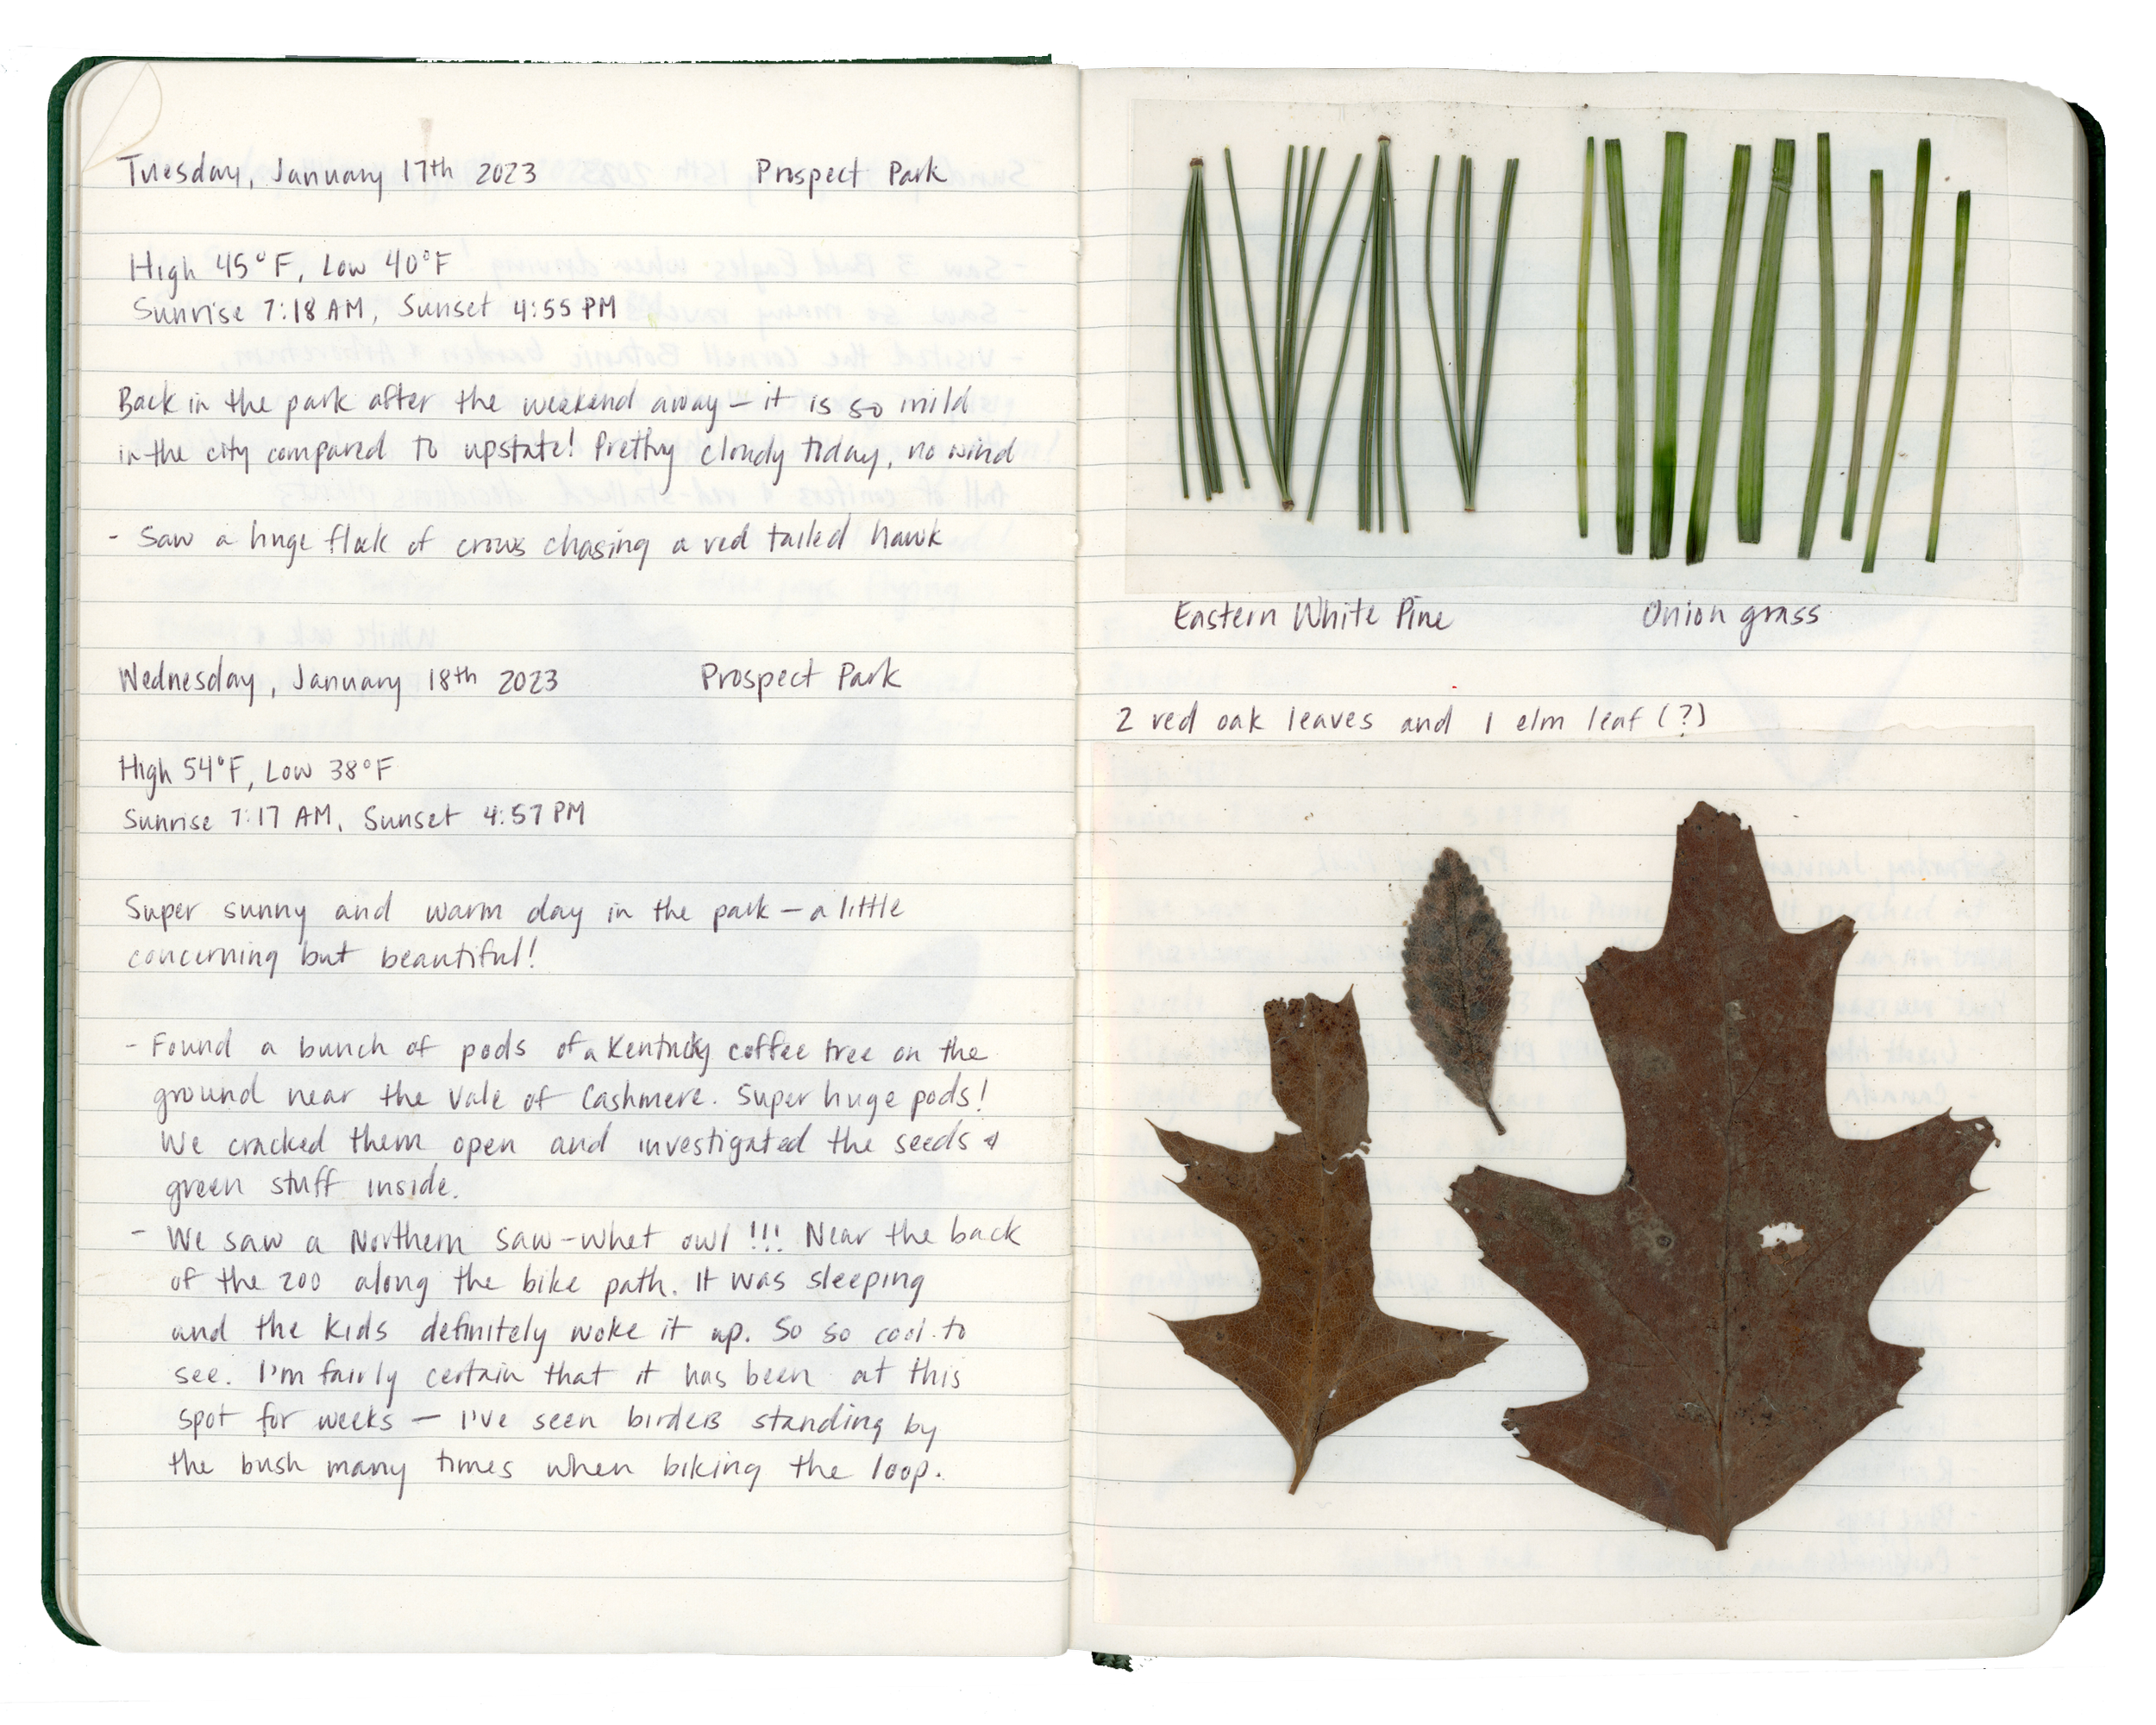 Tuesday, January 17th 2023 Prospect Park
High 45°F, Low 40°F
Sunrise 7:18 AM, Sunset 4:55 PM
Back in the park after the weekend away — it is so mild
in the city compared to upstate! Pretty cloudy today, no wind
- Saw a huge flock of crows chasing a red tailed hawk
Wednesday, January 18th 2023 Prospect Park
High 54°F, Low 38°F
Sunrise 7:17 AM, Sunset 4:57 PM
Super sunny and warm day in the park — a little
concerning but beautiful!
- Found a bunch of pods of a Kentucky coffee tree on the
ground near the Vale of Cashmere. Super huge pods!
We cracked them open and investigated the seeds &
green stuff inside.
- We saw a Northern Saw-Whet owl !!! Near the back
of the zoo along the bike path. It was sleeping
and the kids definitely woke it up. So so cool to
see. I'm fairly certain that it has been at this
spot for weeks — I've seen birders standing by
the bush many times when biking the loop.
Eastern White Pine Onion grass
2 red oak leaves and 1 elm leaf (?)